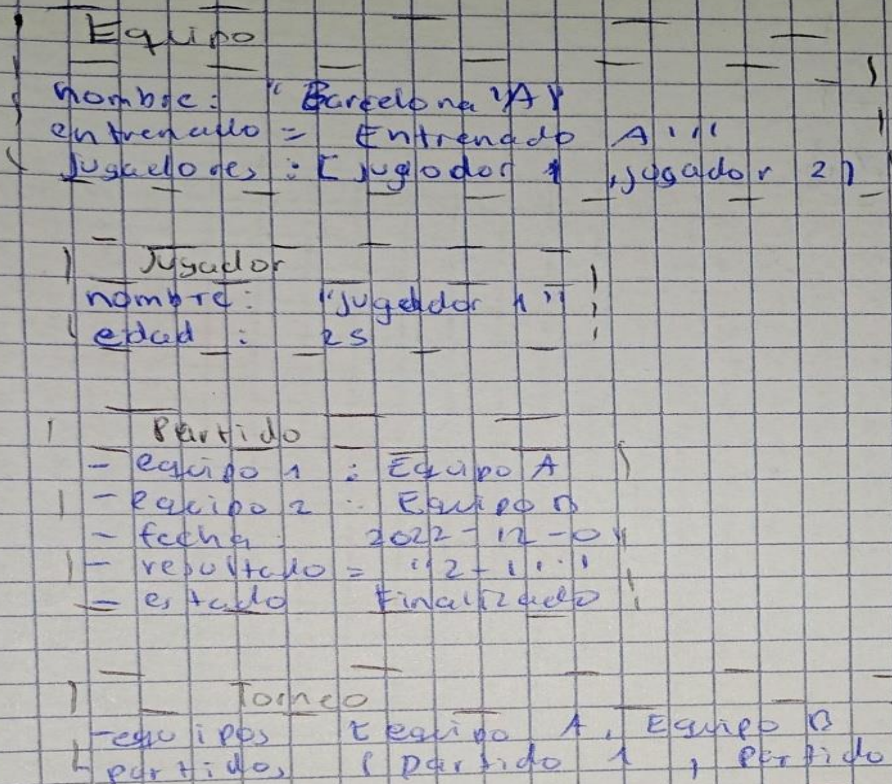 Equipo
nombre: "Barcelona "A"
entrenado = Entrenado A"
Jugadores : [ juglodor 1 , jugador 2]
Jugador
nombre: "jugador 1"
edad : 25
Partido
- equipo 1 : Equipo A
- equipo 2 : Equipo B
- fecha 2022-12-01
- resultado = "2-1"
- estado Finalizado
Torneo
- equipos [ equipo A, Equipo B
- partidos [ partido 1 , partido